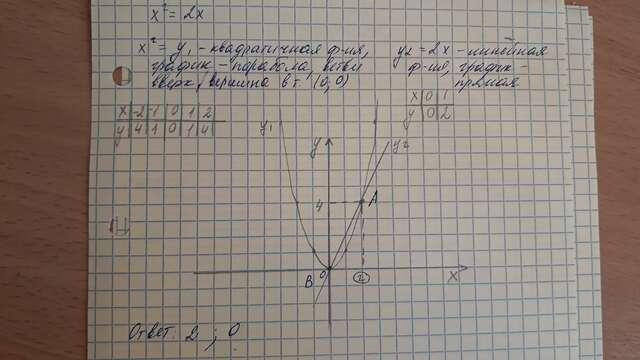 x² = 2x
x² = y₁ - квадратичная ф-ия,
график - парабола, ветви
вверх, вершина в т. (0, 0)
y₂ = 2x - линейная
ф-ия, график -
прямая
x | -2 | -1 | 0 | 1 | 2
y | 4 | 1 | 0 | 1 | 4
x | 0 | 1
y | 0 | 2
y₁
y
y₂
4
A
B
0
2
x
Ответ: 2 ; 0